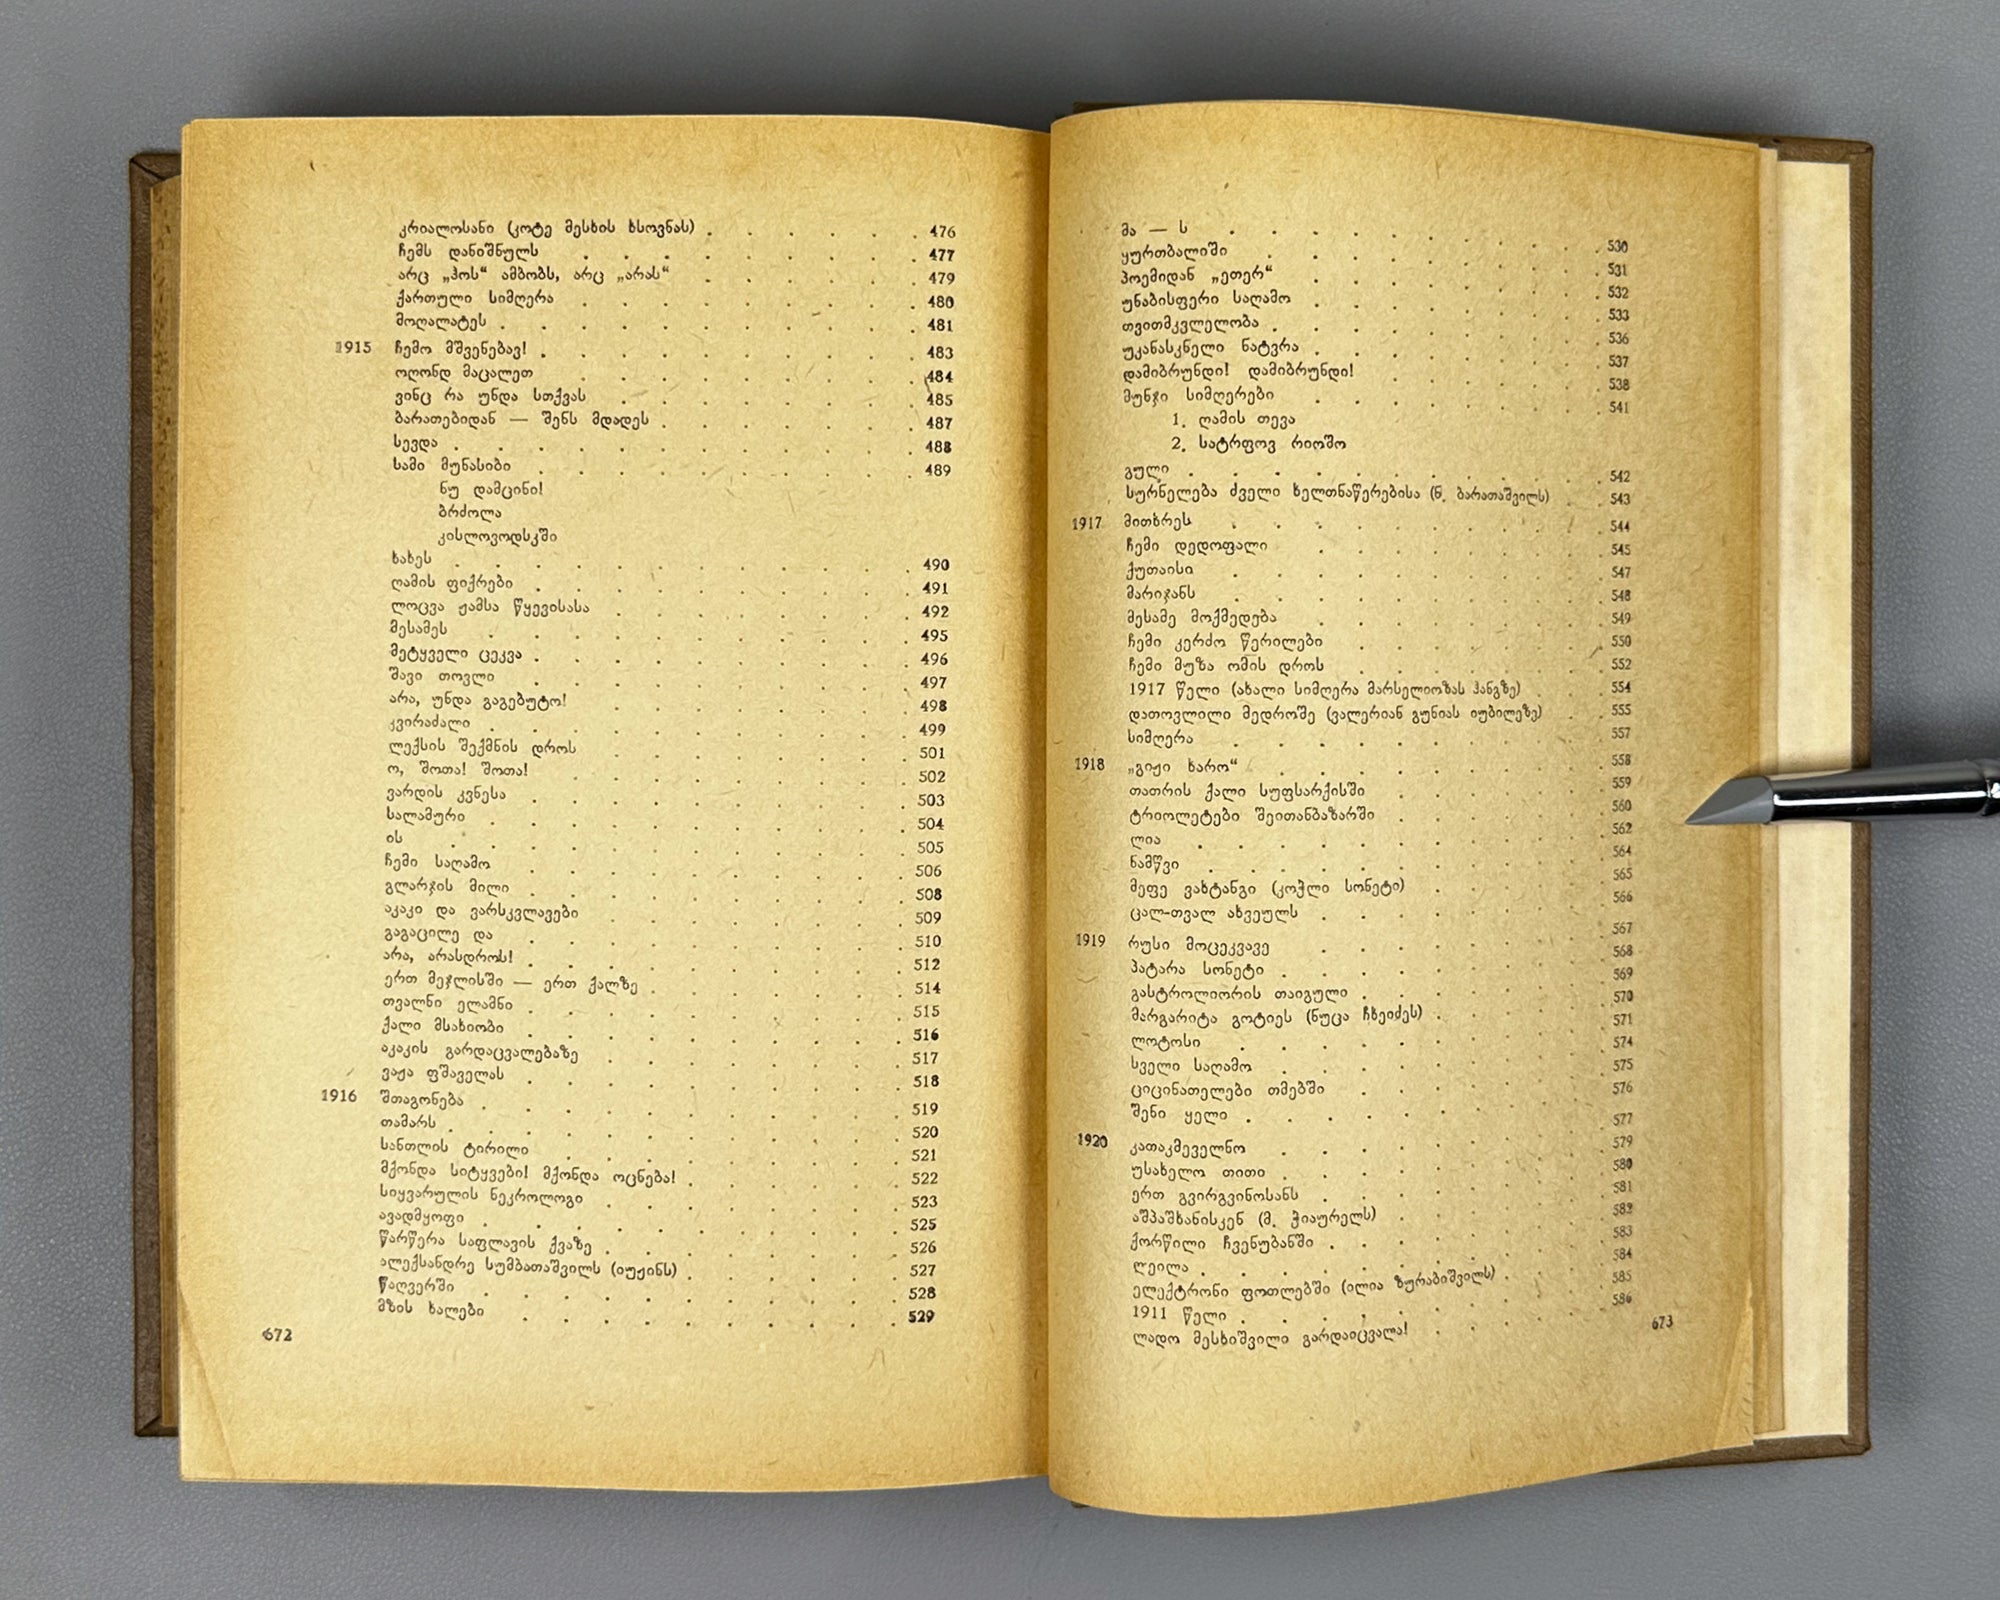 კრიალოსანი (კოტე მესხის ხსოვნას) . . . . . 476
ჩემს დანიშნულს . . . . . . . . 477
არც „ჰოს“ ამბობს, არც „არას“ . . . . . . 479
ქართული სიმღერა . . . . . . . . 480
მოღალატეს . . . . . . . . . . 481
1915 ჩემო მშვენებავ! . . . . . . . . . 483
ოღონდ მაცალეთ . . . . . . . . 484
ვინც რა უნდა სთქვას . . . . . . . 485
ბარათებიდან — შენს მდადეს . . . . . . 487
სევდა . . . . . . . . . . . 488
სამი მუნასიბი . . . . . . . . . 489
ნუ დამცინი!
ბრძოლა
კისლოვოდსკში
ხახეს . . . . . . . . . . . 490
ღამის ფიქრები . . . . . . . . . 491
ლოცვა ჟამსა წყევისასა . . . . . . . 492
მესამეს . . . . . . . . . . 495
მეტყველი ცეკვა . . . . . . . . . 496
შავი თოვლი . . . . . . . . . 497
არა, უნდა გაგებუტო! . . . . . . . . 498
კვირაძალი . . . . . . . . . . 499
ლექსის შექმნის დროს . . . . . . . 501
ო, შოთა! შოთა! . . . . . . . . 502
ვარდის კვნესა . . . . . . . . . 503
სალამური . . . . . . . . . . 504
ის . . . . . . . . . . . 505
ჩემი საღამო . . . . . . . . . 506
გლარჯის მილი . . . . . . . . . 508
აკაკი და ვარსკვლავები . . . . . . . 509
გაგაცილე და . . . . . . . . . 510
არა, არასდროს! . . . . . . . . . 512
ერთ მეჯლისში — ერთ ქალზე . . . . . . 514
თვალნი ელამნი . . . . . . . . . 515
ქალი მსახიობი . . . . . . . . . 516
აკაკის გარდაცვალებაზე . . . . . . . 517
ვაჟა ფშაველას . . . . . . . . . 518
1916 შთაგონება . . . . . . . . . . 519
თამარს . . . . . . . . . . . 520
სანთლის ტირილი . . . . . . . . 521
მქონდა სიტყვები! მქონდა ოცნება! . . . . . 522
სიყვარულის ნეკროლოგი . . . . . . . 523
ავადმყოფი . . . . . . . . . . 525
წარწერა საფლავის ქვაზე . . . . . . . 526
ალექსანდრე სუმბათაშვილს (იუჟინს) . . . . . 527
წაღვერში . . . . . . . . . . 528
მზის ხალები . . . . . . . . . 529
672
მა — ს . . . . . . . . . . 530
ყურთბალიში . . . . . . . . . 531
პოემიდან „ეთერ“ . . . . . . . . 532
უნაბისფერი საღამო . . . . . . . . 533
თვითმკვლელობა . . . . . . . . . 536
უკანასკნელი ნატვრა . . . . . . . . 537
დამიბრუნდი! დამიბრუნდი! . . . . . . 538
მუნჯი სიმღერები . . . . . . . . 541
1. ღამის თევა
2. სატრფოვ რიოშო
გული . . . . . . . . . . . 542
სურნელება ძველი ხელთნაწერებისა (ნ. ბარათაშვილს) . . 543
1917 მითხრეს . . . . . . . . . . 544
ჩემი დედოფალი . . . . . . . . 545
ქუთაისი . . . . . . . . . . 547
მარიჯანს . . . . . . . . . . 548
მესამე მოქმედება . . . . . . . . 549
ჩემი კერძო წერილები . . . . . . . 550
ჩემი მუზა ომის დროს . . . . . . . 552
1917 წელი (ახალი სიმღერა მარსელიოზას ჰანგზე) . . 554
დათოვლილი მედროშე (ვალერიან გუნიას იუბილეზე) . . 555
სიმღერა . . . . . . . . . . 557
1918 „გიჟი ხარო“ . . . . . . . . . 558
თათრის ქალი სუფსარქისში . . . . . . 559
ტრიოლეტები შეითანბაზარში . . . . . . 560
ლია . . . . . . . . . . . 562
ნამწვი . . . . . . . . . . 564
მეფე ვახტანგი (კოჭლი სონეტი) . . . . . 565
ცალ-თვალ ახვეულს . . . . . . . . 566
1919 რუსი მოცეკვავე . . . . . . . . 567
პატარა სონეტი . . . . . . . . . 568
გასტროლიორის თაიგული . . . . . . . 569
მარგარიტა გოტიეს (ნუცა ჩხეიძეს) . . . . . 570
ლოტოსი . . . . . . . . . . 571
სველი საღამო . . . . . . . . . 574
ციცინათელები თმებში . . . . . . . 575
შენი ყელი . . . . . . . . . . 576
1920 კათაკმეველნო . . . . . . . . . 577
უსახელო თითი . . . . . . . . . 579
ერთ გვირგვინოსანს . . . . . . . . 580
აშპაშხანისკენ (მ. ჭიაურელს) . . . . . . 581
ქორწილი ჩვენუბანში . . . . . . . . 582
ლეილა . . . . . . . . . . . 583
ელექტრონი ფოთლებში (ილია ზურაბიშვილს) . . . 584
1911 წელი . . . . . . . . . . 585
ლადო მესხიშვილი გარდაიცვალა! . . . . . 586
673